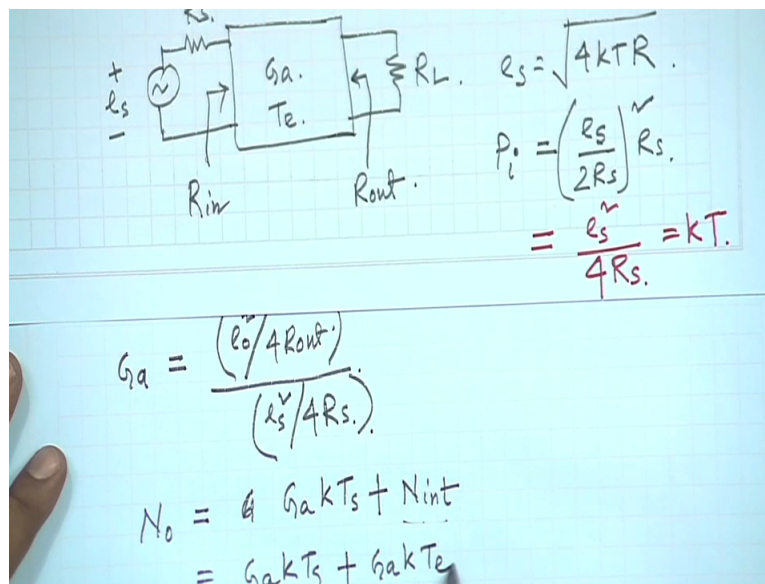 Rs.
+
es
-
Ga.
Te.
RL.
Rin
Rout.
es = √4kTR.
Pi = (es/2Rs)² Rs.
= es²/4Rs. = kT.
Ga = (eo²/4Rout.)/(es²/4Rs.).
No = GakTs + Nint
= GakTs + GakTe